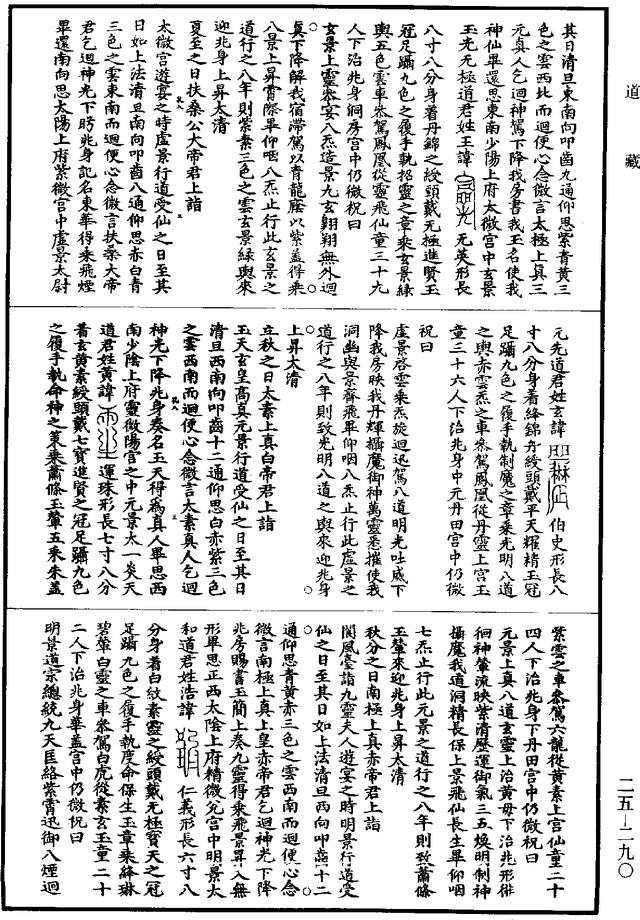 道藏
其日清旦東南向叩齒九通仰思紫青黃三
色之雲西北而迴便心念微言太極上真三
元真人乞迴神駕下降我房書我玉名使我
神仙畢還思東南少陽上府太微宮中玄景
玉光无極道君姓王諱无英形長
八寸八分身着丹錦之綬頭戴无極進賢玉
冠足躡九色之履手執招靈之章乘玄景綠
輿五色雲車參駕鳳凰從靈飛仙童三十九
人下治兆身洞房宮中仍微祝曰
玄景上靈參宴八炁造景九玄翱翔無外迴
真下降解我宿滯駕以青龍䕃以紫蓋得乘
八景上昇霄際畢仰咽八炁止行此玄景之
道行之八年則紫素三色之雲玄景綠輿來
迎兆身上昇太清
夏至之日扶桑公大帝君上詣
太微宮遊宴之時虛景行道受仙之日至其
日如上法清旦南向叩齒八通仰思赤白青
三色之雲東南而迴便心念微言扶桑大帝
君乞迴神光下眄兆身記名東華得乘飛煙
畢還南向思太陽上府紫微宮中虛景太尉
元先道君姓玄諱伯史形長八
寸八分身着絳錦丹綬頭戴平天耀精玉冠
足躡九色之履手執制魔之章乘光明八道
之輿赤雲炁之車參駕鳳凰從丹靈上宮玉
童三十六人下治兆身中元丹田宮中仍微
祝曰
虛景啓雲乘炁旋迴迅駕八道明光吐威下
降我房映我丹輝攝魔御神萬靈悉摧使我
洞幽與景齊飛畢仰咽八炁止行此虛景之
道行之八年則致光明八道之輿來迎兆身
上昇太清
立秋之日太素上真白帝君上詣
玉天玄皇高真元景行道受仙之日至其日
清旦西南向叩齒十二通仰思白赤紫三色
之雲西南而迴便心念微言太素真人乞迴
神光下降兆身奏名玉天得爲真人畢思西
南少陰上府靈微陽宮之中元景太一炎天
道君姓黃諱運珠形長七寸八分
着玄黃素綬頭戴七寶進賢之冠足躡九色
之履手執命神之策乘蕭條玉輦五采朱蓋
紫雲之車參駕六龍從黃素上宮仙童二十
四人下治兆身下丹田宮中仍微祝曰
元景上真八道玄靈上治黃毋下治兆形徘
徊神輦流映紫清歷運御氣三五煥明制神
攝魔我道洞精長保上景飛仙長生畢仰咽
七炁止行此元景之道行之八年則致蕭條
玉輦來迎兆身上昇太清
秋分之日南極上真赤帝君上詣
閬風臺詣九靈夫人遊宴之時明景行道受
仙之日至其日如上法清旦西向叩齒十二
通仰思青黃赤三色之雲西南而迴便心念
微言南極上真上皇赤帝君乞迴神光下降
兆房賜書玉簡上奏九靈得乘飛景昇入無
形畢思正西太陰上府精微兌宮中明景太
和道君姓浩諱仁義形長六寸八
分身着白紋素靈之綬頭戴无極寶天之冠
足躡九色之履手執度命保生玉章乘絳琳
碧輦白靈之車參駕白虎從素玄玉童二十
二人下治兆身華蓋宮中仍微祝曰
明景道宗總統九天匡絡紫霄迅御八煙迴
二五—二九〇